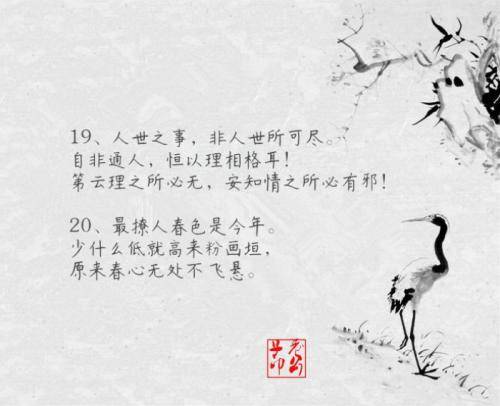 19、人世之事，非人世所可尽。
自非通人，恒以理相格耳！
第云理之所必无，安知情之所必有邪！
20、最撩人春色是今年。
少什么低就高来粉画垣，
原来春心无处不飞悬。